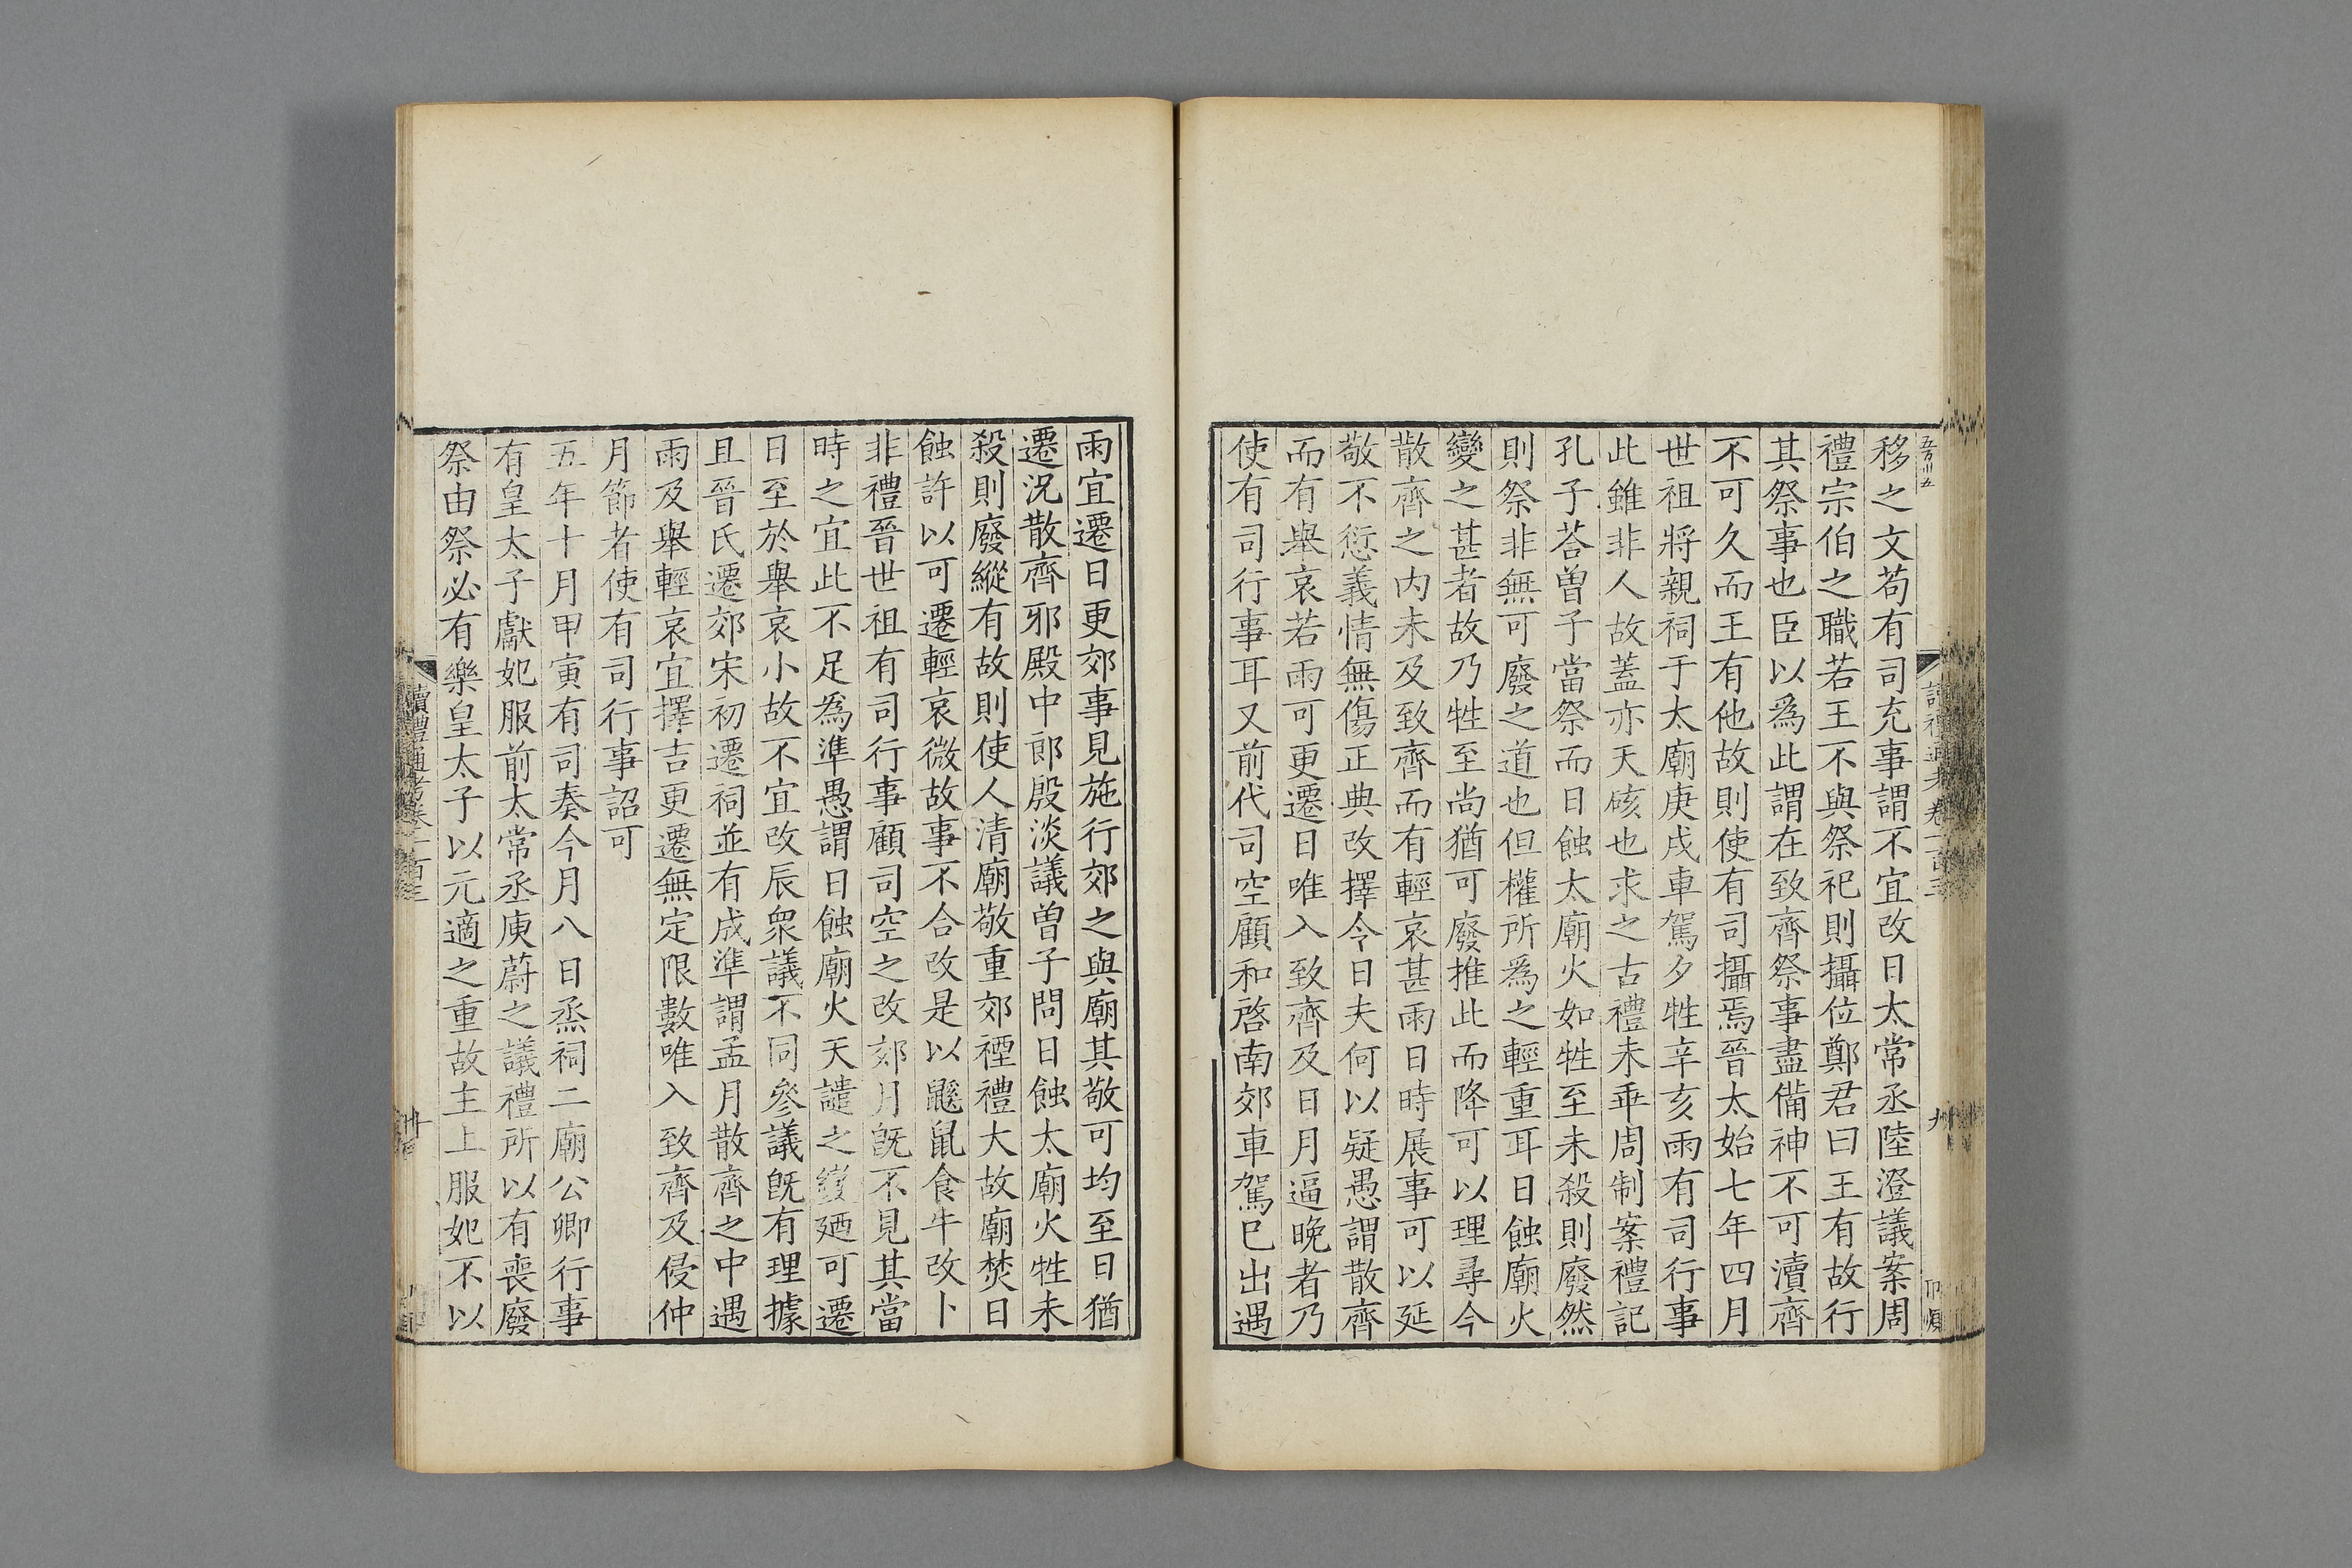 移之文苟有司充事謂不宜改日太常丞陸澄議案周
禮宗伯之職若王不與祭祀則攝位鄭君曰王有故行
其祭事也臣以爲此謂在致齊祭事盡備神不可瀆齊
不可久而王有他故則使有司攝焉晉太始七年四月
世祖將親祠于太廟庚戌車駕夕牲辛亥雨有司行事
此雖非人故蓋亦天硋也求之古禮未乖周制案禮記
孔子荅曽子當祭而日蝕太廟火如牲至未殺則廢然
則祭非無可廢之道也但權所爲之輕重耳日蝕廟火
變之甚者故乃牲至尚猶可廢推此而降可以理尋今
散齊之内未及致齊而有輕哀甚雨日時展事可以延
敬不愆義情無傷正典改擇令日夫何以疑愚謂散齊
而有舉哀若雨可更遷日唯入致齊及日月逼晚者乃
使有司行事耳又前代司空顧和啓南郊車駕巳出遇
雨宜遷日更郊事見施行郊之與廟其敬可均至日猶
遷況散齊邪殿中郎殷淡議曽子問日蝕太廟火牲未
殺則廢縱有故則使人清廟敬重郊禋禮大故廟焚日
蝕許以可遷輕哀微故事不合改是以鼷鼠食牛改卜
非禮晉世祖有司行事顧司空之改郊月旣不見其當
時之宜此不足為準愚謂日蝕廟火天譴之變廼可遷
日至於舉哀小故不宜改辰衆議不同參議旣有理據
且晉氏遷郊宋初遷祠並有成準謂孟月散齊之中遇
雨及舉輕哀宜擇吉更遷無定限數唯入致齊及侵仲
月節者使有司行事詔可
五年十月甲寅有司奏今月八日烝祠二廟公卿行事
有皇太子獻妃服前太常丞庾蔚之議禮所以有喪廢
祭由祭必有樂皇太子以元適之重故主上服妃不以
讀禮通考卷一百三